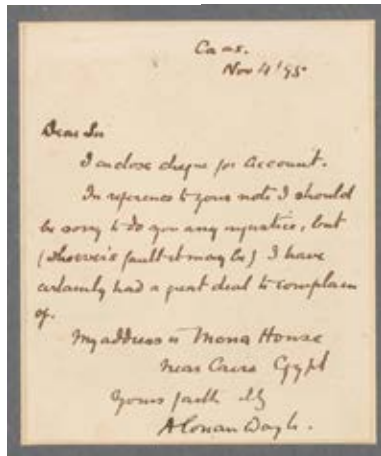 Caux.
Nov 4/95
Dear Sir
I enclose cheque for Account.
In reference to your note I should
be sorry to do you any injustice, but
(whoever's fault it may be) I have
certainly had a great deal to complain
of.
My address is Mena House
Near Cairo Egypt
Yours faithfully
A Conan Doyle.